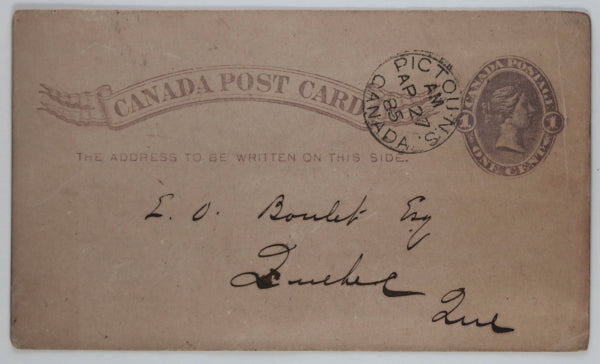 CANADA POST CARD
PICTOU N.S.
AM
AP 27
85
CANADA
CANADA POSTAGE
1 1
ONE CENT
THE ADDRESS TO BE WRITTEN ON THIS SIDE.
E. O. Boulet Esq
Quebec
Que